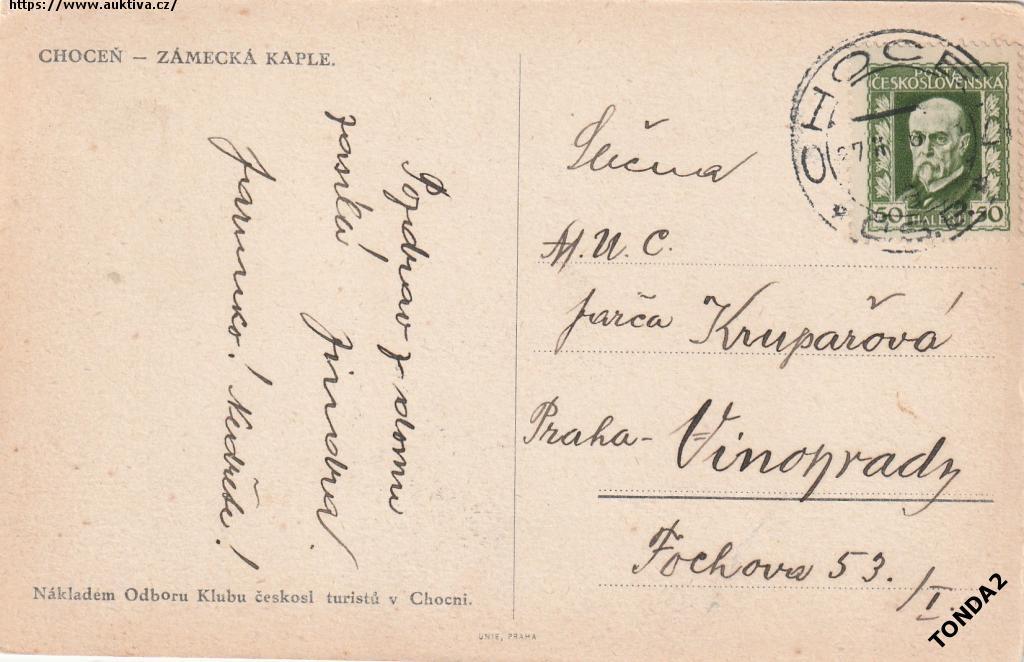 https://www.auktiva.cz/
CHOCEŇ — ZÁMECKÁ KAPLE.
Pozdrav z domu
zasílá Jindra.
Jarunko! Nedřete!
Nákladem Odboru Klubu českosl turistů v Chocni.
UNIE, PRAHA
CHOCE
POŠTA
ČESKOSLOVENSKÁ
50 HALÉŘŮ 50
Slečna
M.U.C.
Jarča Kruparová
Praha - Vinohrady
Fochova 53.
/I.
TONDA2